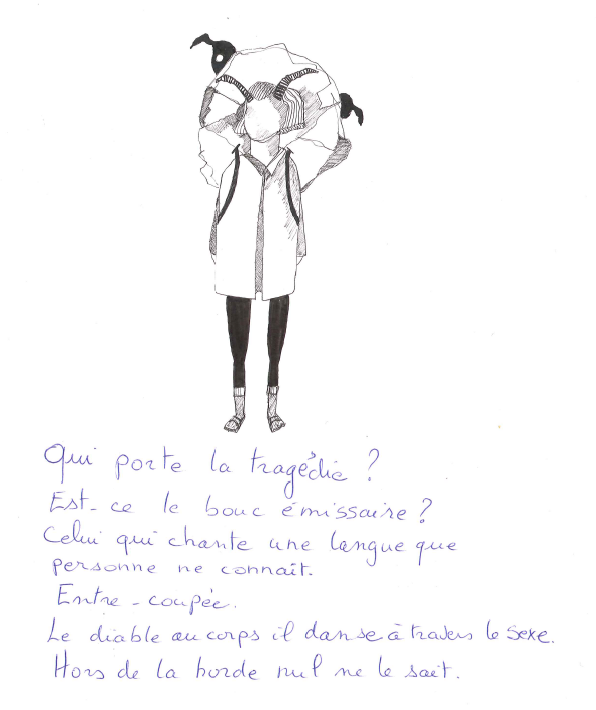 Qui porte la tragédie ?
Est-ce le bouc émissaire ?
Celui qui chante une langue que
personne ne connaît.
Entre-coupée.
Le diable au corps il danse à travers le sexe.
Hors de la horde nul ne le sait.